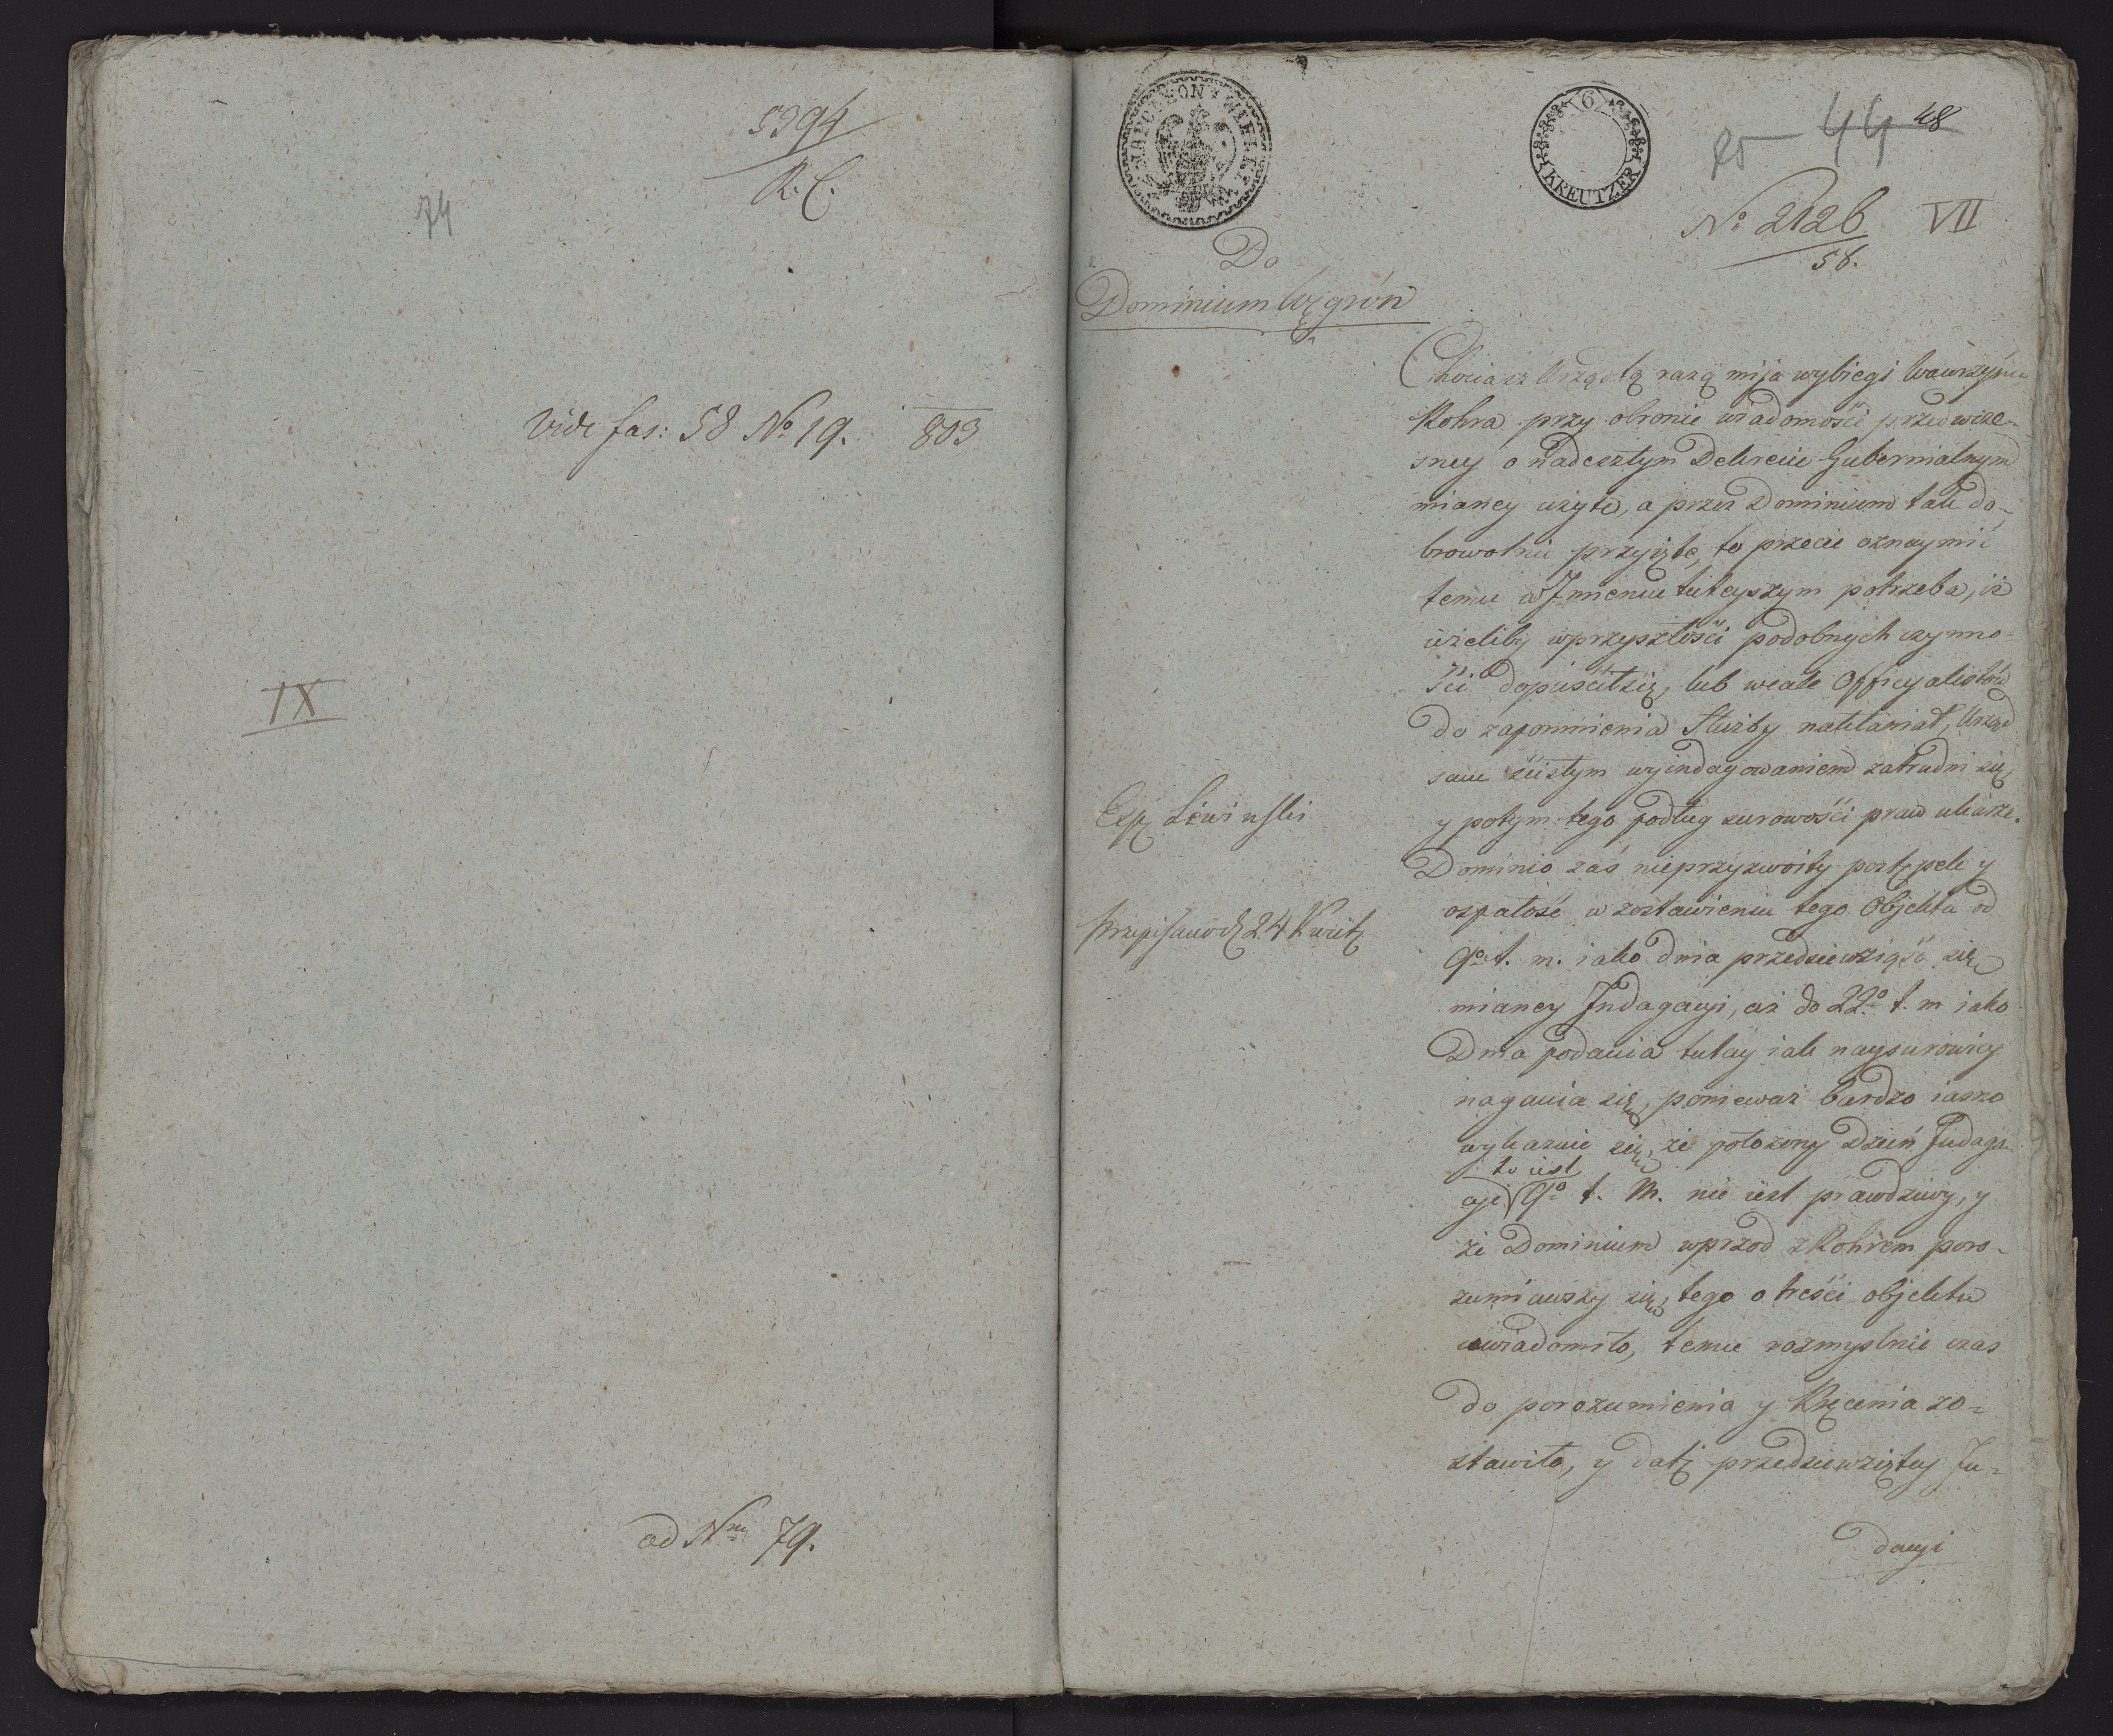 5394
R. C.
74
Vide fas: 58 No 19. 803
IX
ad Nrm 79.
NAPOLEON WIELKI
6 KREUTZER
44 48
No 2126 VII
58.
Do
Dominium Węgrów
Chociasz Urząd tą razą mija wybiegi Wawrzyńca
Rohra przy obronie wiadomości przedwcze-
sney o nadeszłym Dekrecie Gubernialnym
mianey użyte, a przez Dominium tak do-
browolnie przyięte, to przecie oznaymić
temu w Jmieniu tuteyszym potrzeba, iż
ieżeliby wprzyszłości podobnych czynno-
ści dopuścił się, lub wcale Officyalistów
do zapomnienia Służby nakłaniał, Urząd
sam ścisłym wyindagowaniem zatrudni się
y potym tego podług surowości praw ukarze.
Dominio zaś nieprzyzwoity postępek y
ospałość w zostawieniu tego Objektu od
9o t. m. iako dnia przedsiewziąść się
mianey Jndagacyi, aż do 22o t. m iako
Dnia podania tutay iak naysurowiey
nagania się, ponieważ bardzo iasno
wykazuie się, że położony Dzień Jndaga
to iest
cyi 9o t. M. nie iest prawdziwy, y
że Dominium wprzod z Rohrem poro-
zumiawszy się, tego o treści objektu
uwiadomiło, temu rozmyslnie czas
do porozumienia y Kręcenia zo=
stawiło, y datę przedsiewziętey Jn=
dacyi
Exp Lewinski
przepisano d 24 Kwit